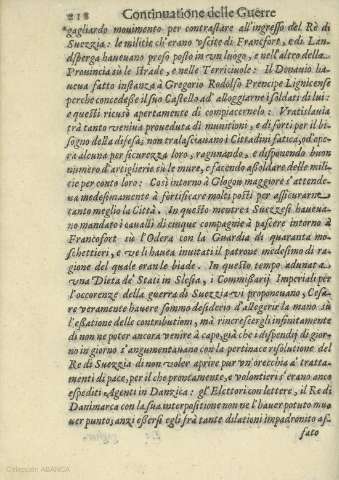 218 Continuatione delle Guerre
gagliardo mouimento per contrastare all'ingresso del Rè di
Suezzia: le militie ch'erano vscite di Francfort, e di Lan-
dsberga haueuano preso posto in vn luogo, e nell'altro della
Prouincia sù le strade, e nelle Terricciuole: Il Donauio ha-
ueua fatto instanza à Gregorio Rodolfo Prencipe Lignicense
perche concedesse il suo Castello ad alloggiarne i soldati di lui:
e questi ricusò apertamente di compiacernelo: Vratislauia
trà tanto veniua proueduta di munitioni, e di forti per il bi-
sogno della difesa; non tralasciauano i Cittadini fatica, od'ope-
ra alcuna per sicurezza loro, ragunando, e disponendo buon
numero d'artiglierie sù le mure, e facendo assoldare delle mili-
tie per conto loro: Così intorno à Glogon maggiore s'attende-
ua medesimamente à fortificare molti posti per assicurarne
tanto meglio la Città. In questo mentre i Suezzesi haueua-
no mandato i caualli di cinque compagnie à pascere intorno à
Francofort sù l'Odera con la Guardia di quaranta mo-
schettieri, e ve li haueua inuitati il patrone medesimo di ra-
gione del quale eran le biade. In questo tempo adunata
vna Dieta de' Stati in Slesia, i Commissarij Imperiali per
l'occorenze della guerra di Suezzia vi proponeuano, Cesa-
re veramente hauere sommo desiderio d'allegerir la mano sù
l'essatione delle contributioni, mà rincrescergli infinitamente
di non ne poter ancora venire à capo, già che i dispendij di gior-
no in giorno s'augumentauano con la pertinace risolutione del
Re di Suezzia di non voler aprire pur vn'orecchia à' tratta-
menti di pace, per il che prontamente, e volontieri s'erano anco
espediti Agenti in Danzica: gl'Elettori con lettere, il Re di
Danimarca con la sua interpositione non ve l'hauer potuto mo-
uer punto; anzi essersi egli frà tante dilationi impadronito af-
fato
Colección ABANCA